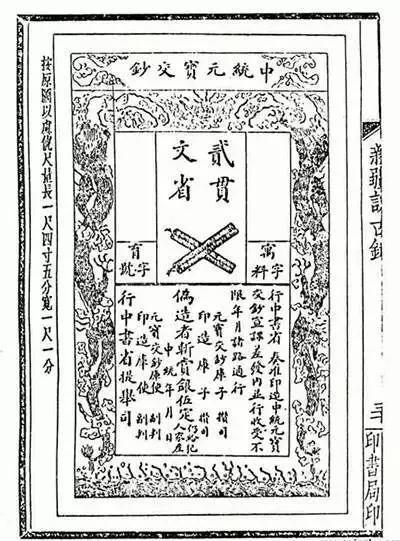 中統元寶交鈔
貳貫
文省
寓字料
育字號
行中書省 奏准印造中統元寶
交鈔宣課差發內並行收受不
限年月諸路通行
元寶交鈔庫子 攢司
印造庫子 攢司
偽造者斬賞銀伍定仍給犯人家產
中統 年 月 日
元寶交鈔庫使 副判
印造庫使 副判
行中書省提舉司
按原圖以慮俿尺量長一尺四寸五分寬一尺一分
新疆訪古錄
印書局印